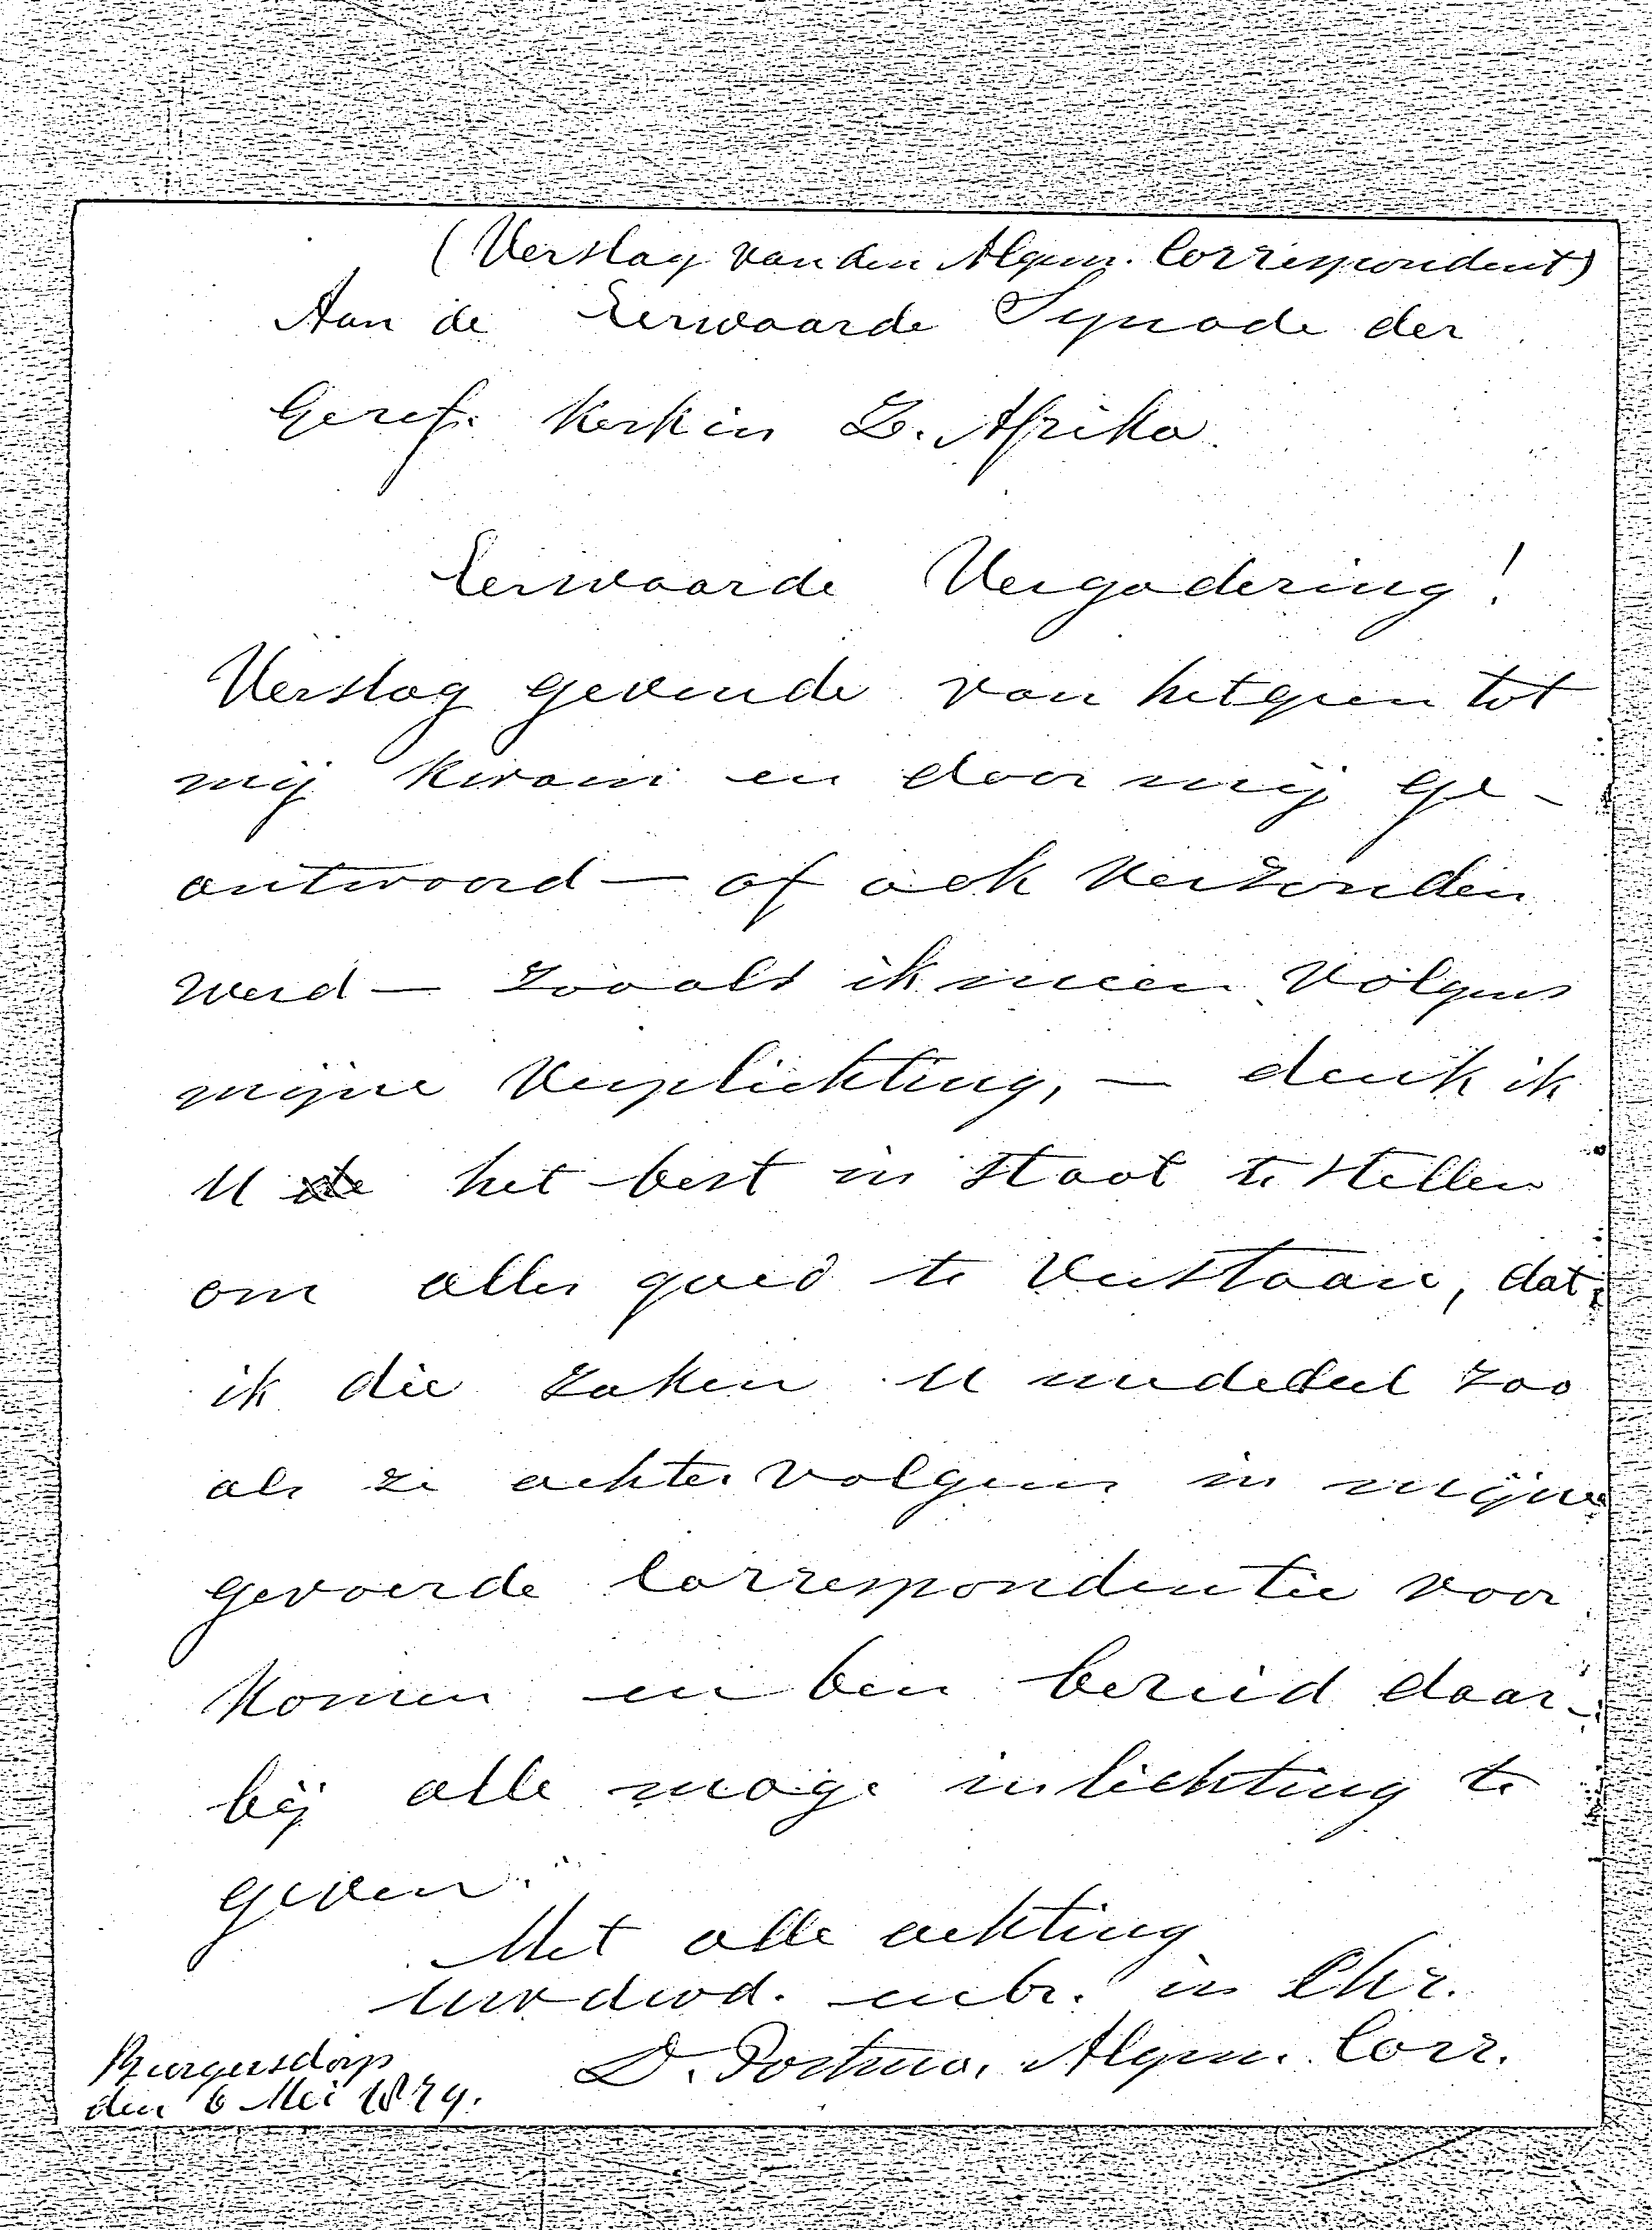 (Verslag van den Algem. Correspondent)
Aan de Eerwaarde Synode der
Geref. Kerk in Z. Afrika.
Eerwaarde Vergadering!
Verslag gevende van hetgeen tot
mij kwam en door mij ge-
antwoord — of ook verzonden
werd — zooals ik meen volgens
mijne verplichting, — denk ik
U het best in staat te stellen
om alles goed te verstaan, dat
ik die zaken U mededeel zoo
als ze achtervolgens in mijne
gevoerde Correspondentie voor
komen en ben bereid daar-
bij alle moge inlichting te
geven.
Met alle achting
Uwdwd. mbr. in Chr.
D. Postma, Algem. Corr.
Burgersdorp
den 6 Mei 1879.